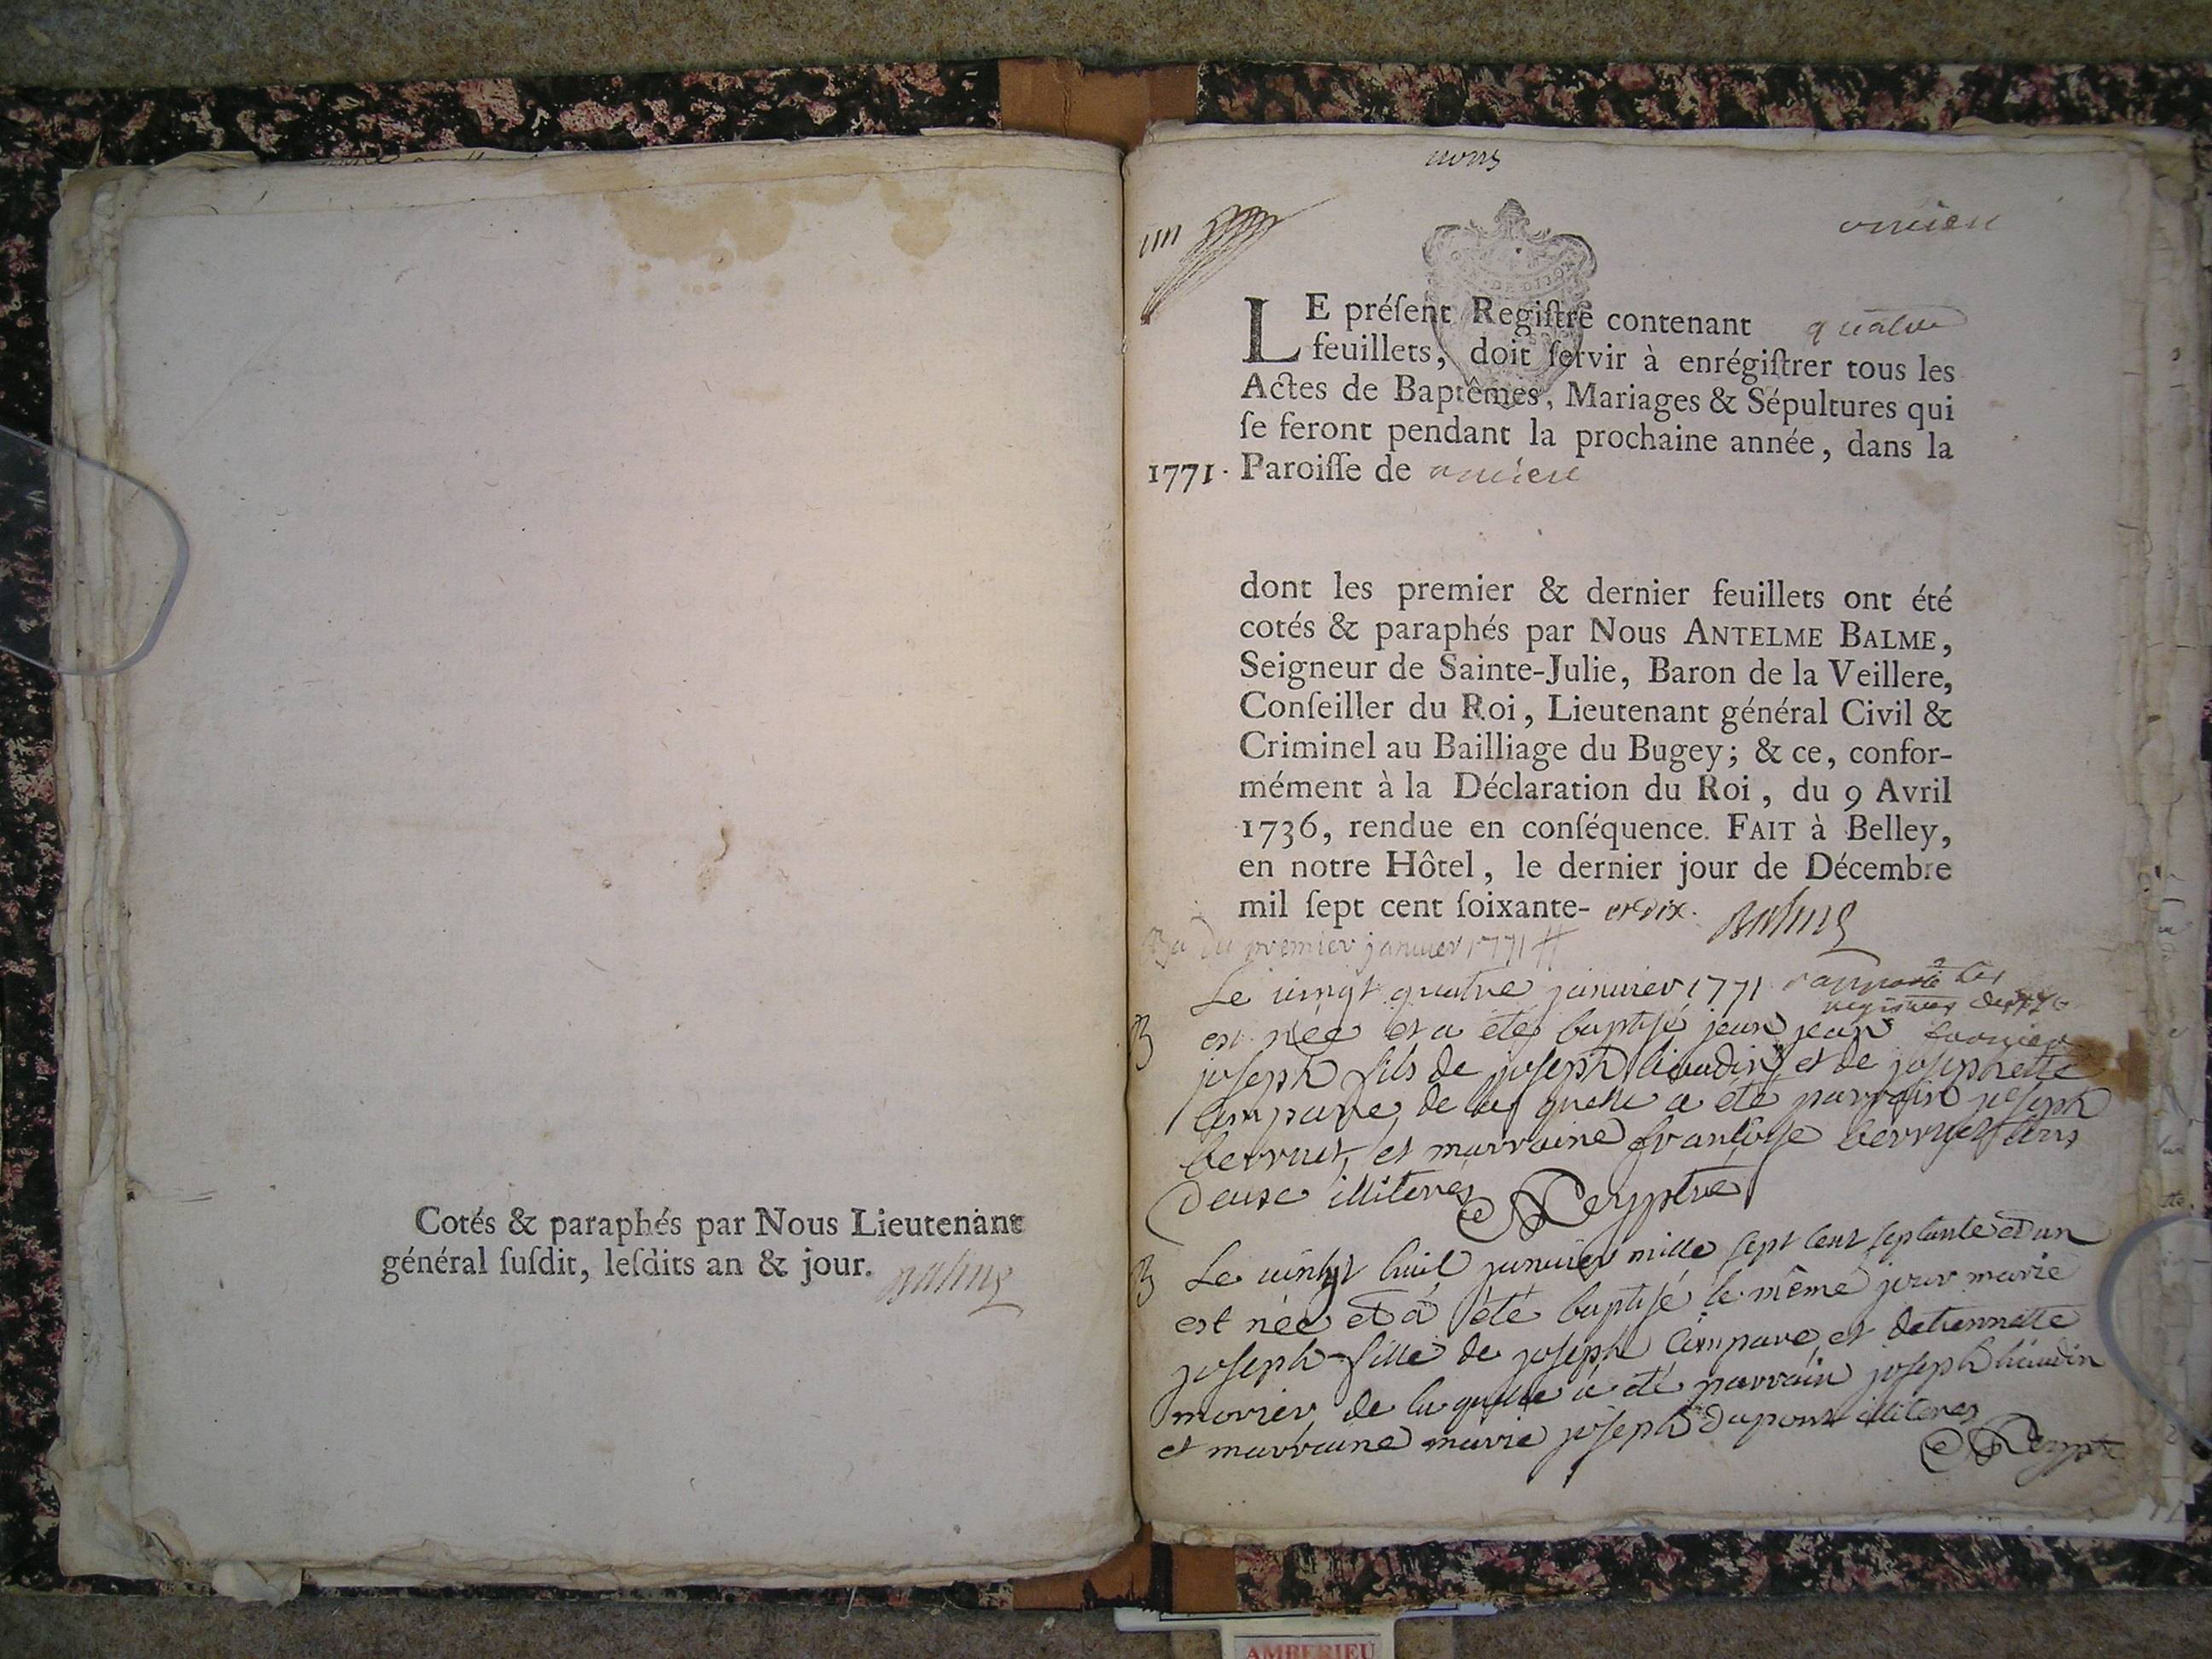 Cotés & paraphés par Nous Lieutenant
général ſuſdit, leſdits an & jour.
Balme
LE préſent Regiſtre contenant quatre
feuillets, doit ſervir à enrégiſtrer tous les
Actes de Baptêmes, Mariages & Sépultures qui
ſe feront pendant la prochaine année, dans la
1771. Paroiſſe de
dont les premier & dernier feuillets ont été
cotés & paraphés par Nous ANTELME BALME,
Seigneur de Sainte-Julie, Baron de la Veillere,
Conſeiller du Roi, Lieutenant général Civil &
Criminel au Bailliage du Bugey; & ce, confor-
mément à la Déclaration du Roi, du 9 Avril
1736, rendue en conſéquence. FAIT à Belley,
en notre Hôtel, le dernier jour de Décembre
mil ſept cent ſoixante- et dix. Balme
du premier janvier 1771
Le vingt quatre janvier 1771
B est née et a été baptisé jean
joseph fils de joseph liaudin et de josephette
compare de la quelle a été parrain joseph
berruet, et marraine françoise berruet tous
deux illiteres Reyptre
B Le vinht huit janvier mille sept cent septante et un
est née et a été baptisé le même jour marie
joseph fille de joseph compare et detiennette
morier de la quelle a été parrain joseph liaudin
et marraine marie joseph dupont illiteres
AMBERIEU